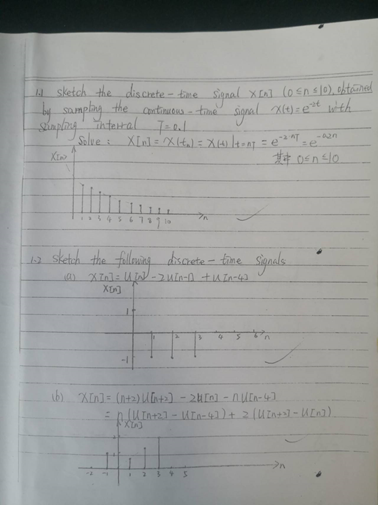 1.1 sketch the discrete-time signal x[n] (0≤n≤10) obtained
by sampling the continuous-time signal x(t)=e^{-2t} with
sampling interval T=0.1
Solve: x[n]=x(tn)=x(t)|t=nT=e^{-2·nT}=e^{-0.2n}
其中 0≤n≤10
x[n]
1 2 3 4 5 6 7 8 9 10 n
1.2 sketch the following discrete-time signals
(a) x[n]=u[n]-2u[n-1]+u[n-4]
x[n]
1
1 2 3 4 5 6 n
-1
(b) x[n]=(n+2)u[n+2]-2u[n]-nu[n-4]
=n(u[n+2]-u[n-4])+2(u[n+2]-u[n])
x[n]
-2 -1 1 2 3 4 5 n